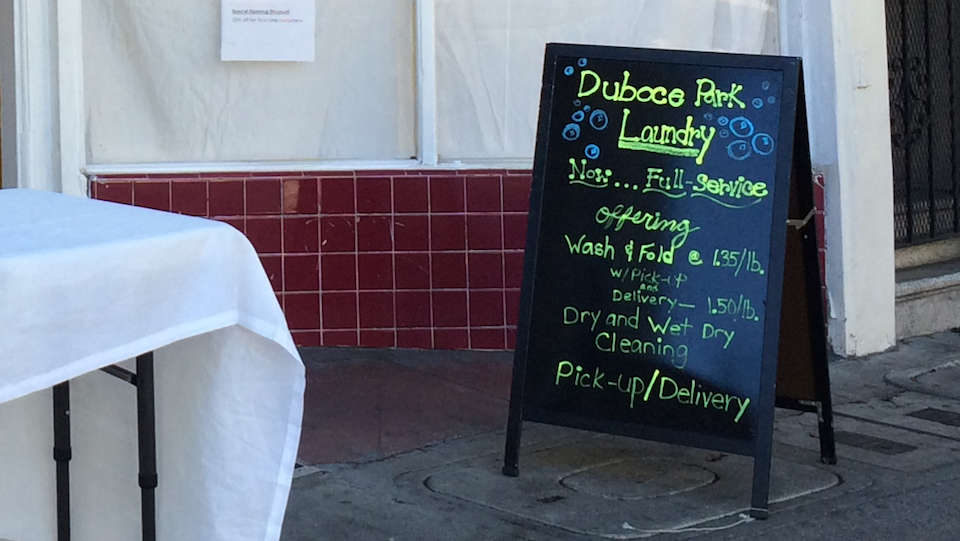 Special Opening Discount
20% off for first time customers
Duboce Park
Laundry
Now... Full-Service
offering
Wash & Fold @ 1.35/lb.
w/Pick-up
and
Delivery— 1.50/lb.
Dry and Wet Dry
Cleaning
Pick-up/Delivery